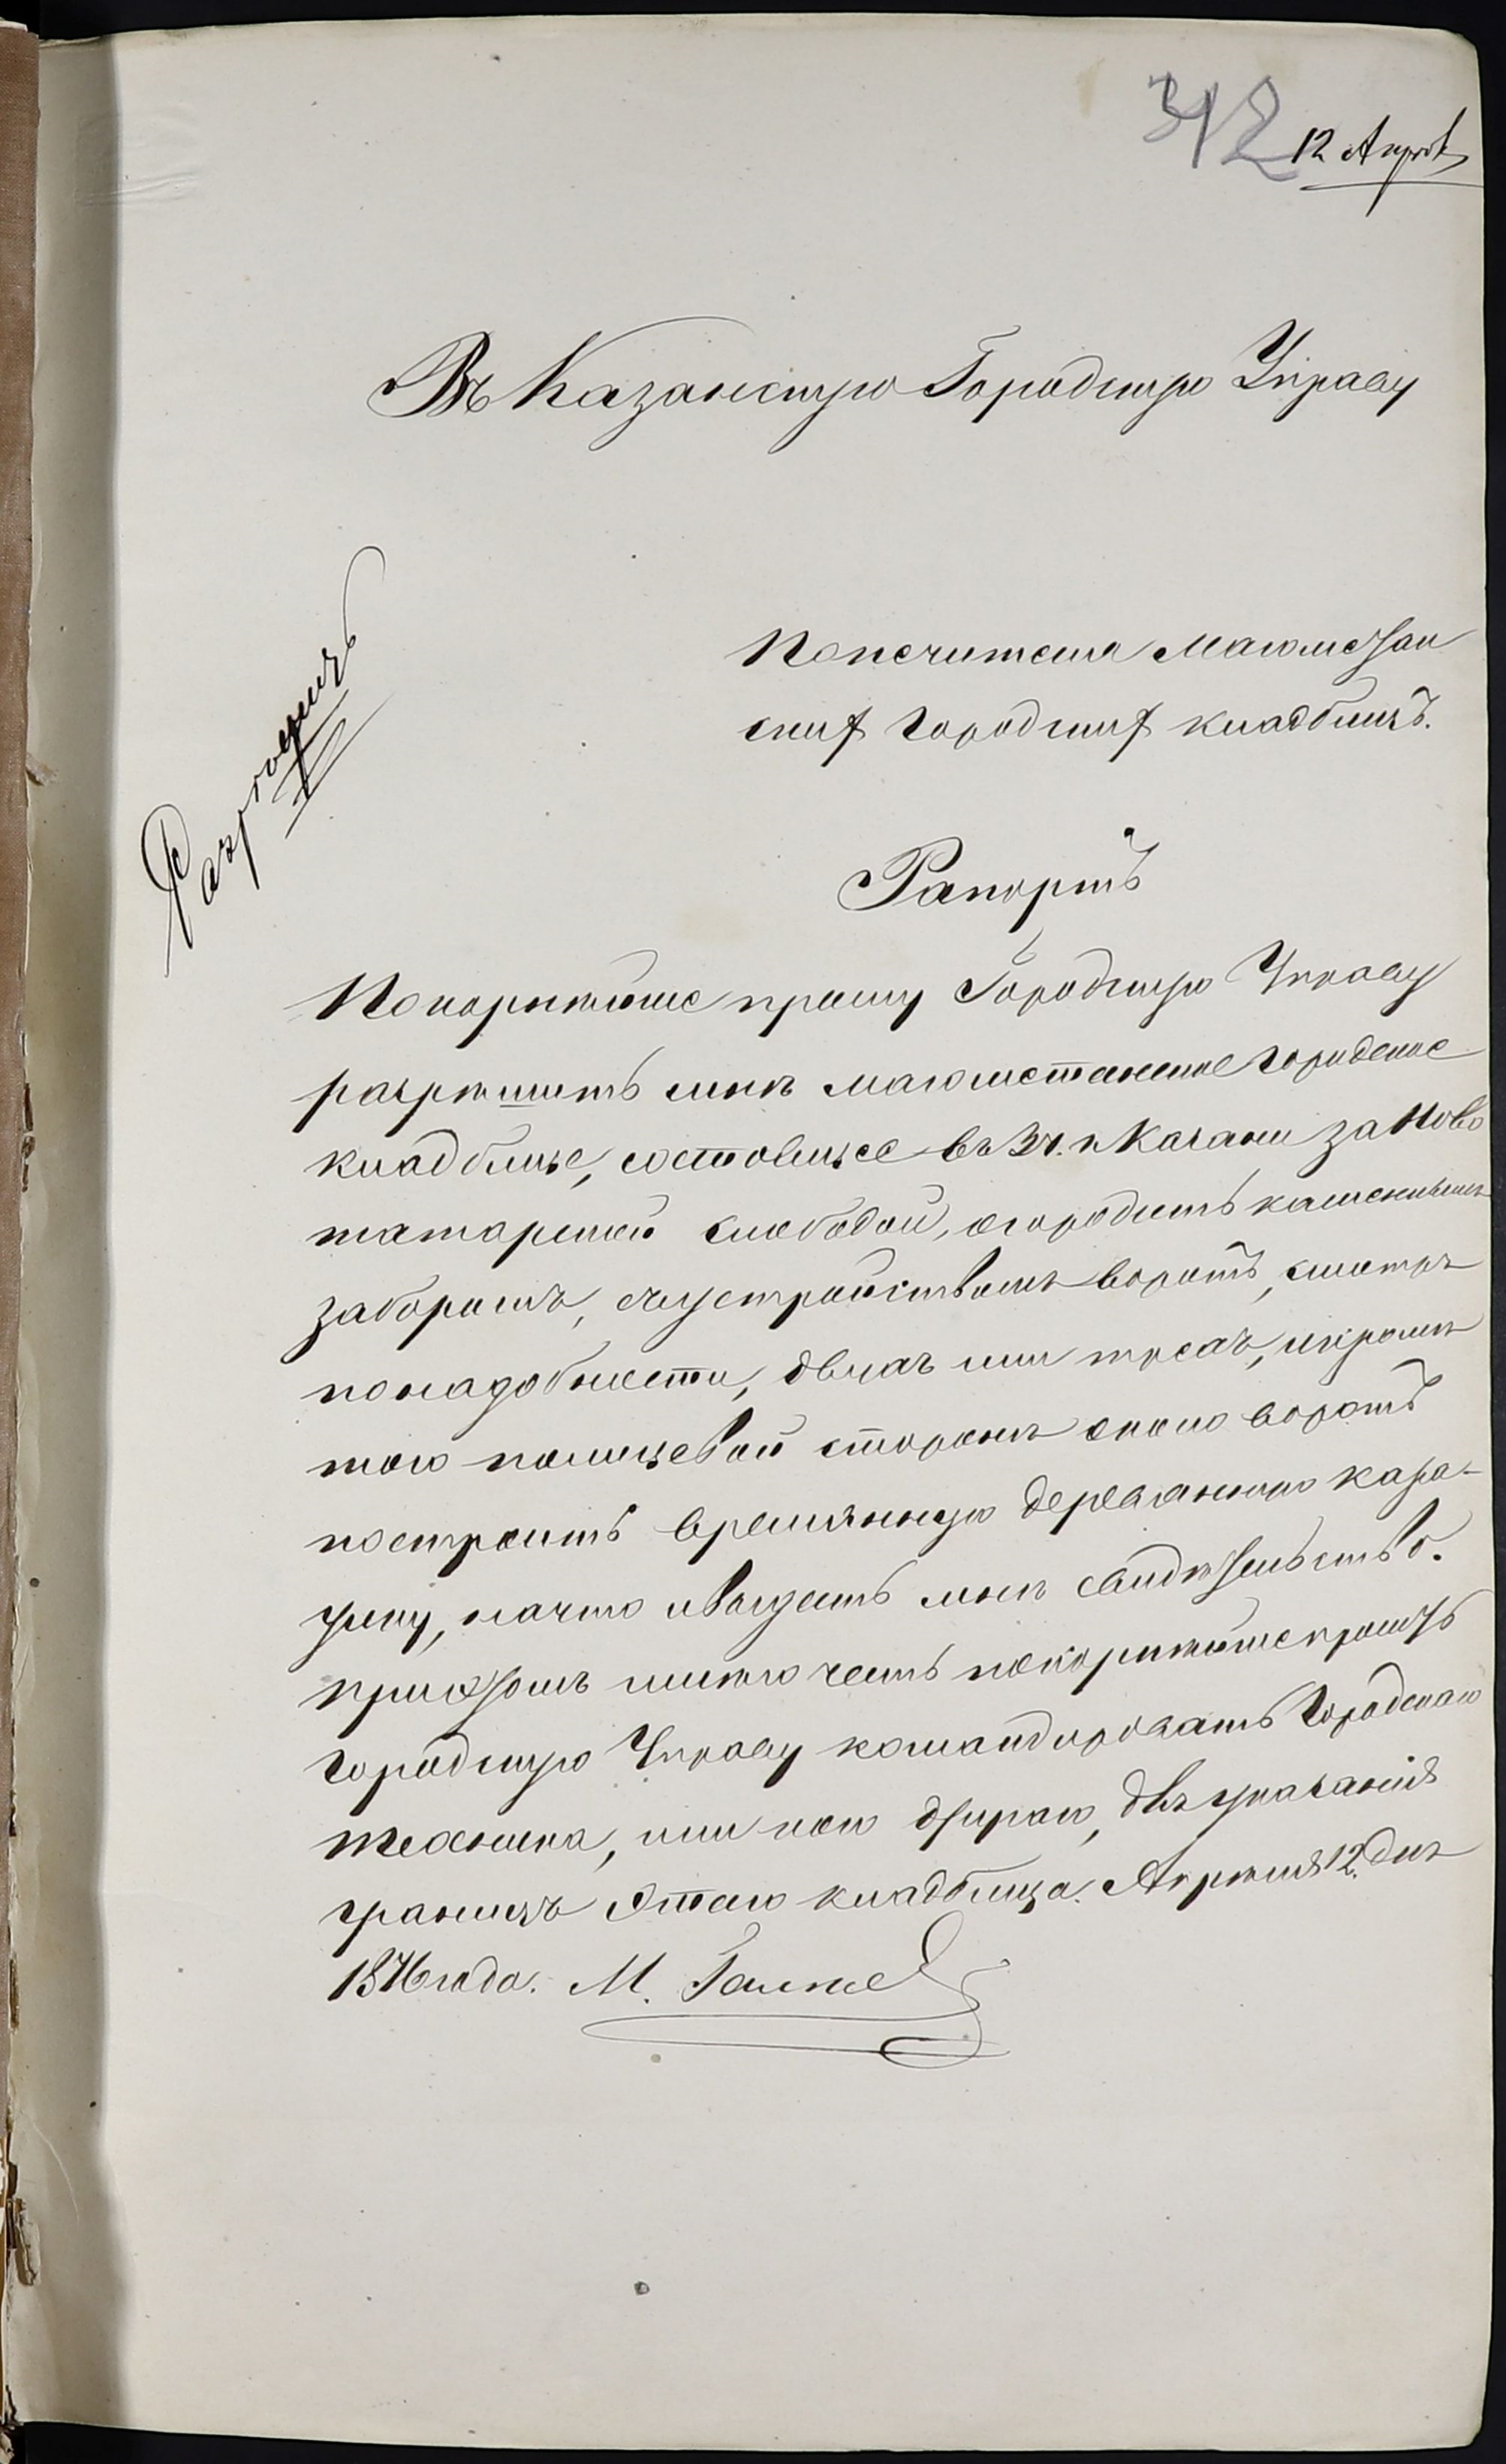 312 12 Апрѣл
Въ Казанскую Городскую Управу
Попечителя Магометан
скихъ городскихъ кладбищъ.
Рапортъ
Покорнѣйше прошу Городскую Управу
разрѣшить мнѣ магометанское городское
кладбище, состоящее въ 3 ч. г. Казани за Ново
татарской слободой, огородить каменнымъ
заборомъ, съ устройствомъ воротъ, смотря
по надобности, двухъ или трехъ, и кромѣ
того по лицевой сторонѣ около воротъ
построить времянную деревянную кара-
улку, на что и выдать мнѣ свидѣтельство.
При этомъ имѣю честь покорнѣйше просить
Городскую Управу командировать Городскаго
техника, или кого другаго, для указанія
границъ этаго кладбища. Апрѣля 12 дня
1876 года. М. Галѣев